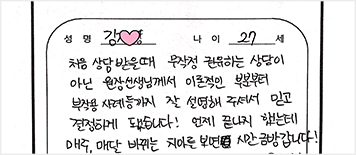 성 명 김 영 나 이 27 세
처음 상담 받을때 무작정 권유하는 상담이
아닌 원장선생님께서 이론적인 부분부터
부작용 사례등까지 잘 설명해 주셔서 믿고
결정하게 됐습니다! 언제 끝나지 했는데
매주, 매달 바뀌는 치아를 보면 시간 금방갑니다!